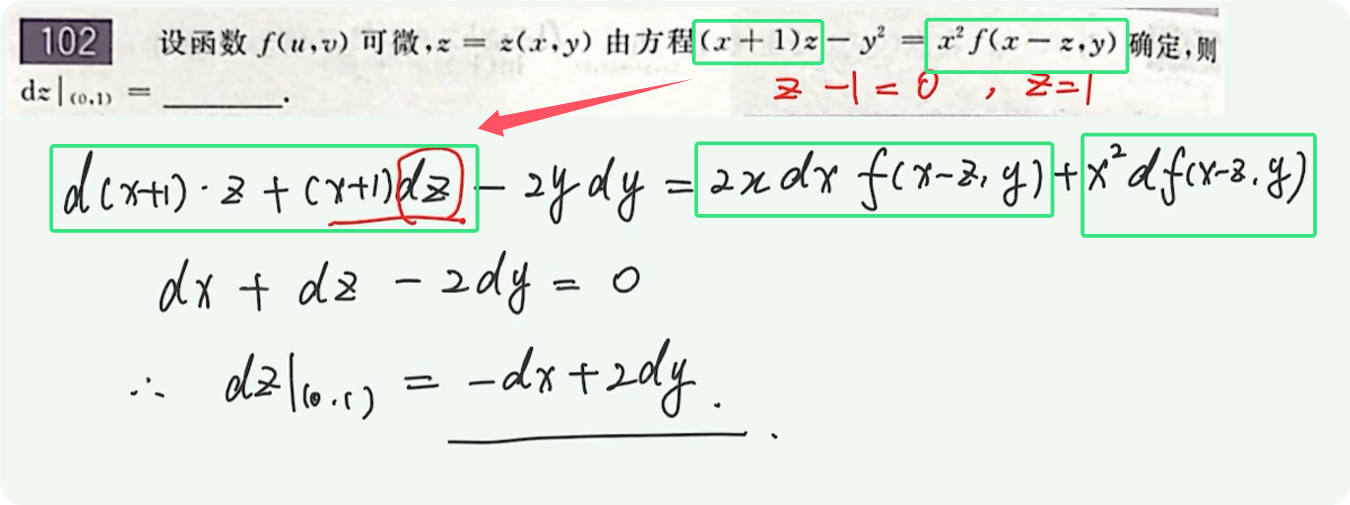 102 设函数 f(u,v) 可微,z = z(x,y) 由方程(x + 1)z − y² = x² f(x − z,y) 确定,则
dz|(0,1) = ______.
z − 1 = 0 , z = 1
d(x+1)·z + (x+1)dz − 2y dy = 2x dx f(x−z, y) + x² df(x−z, y)
dx + dz − 2dy = 0
∴ dz|(0,1) = −dx + 2dy.